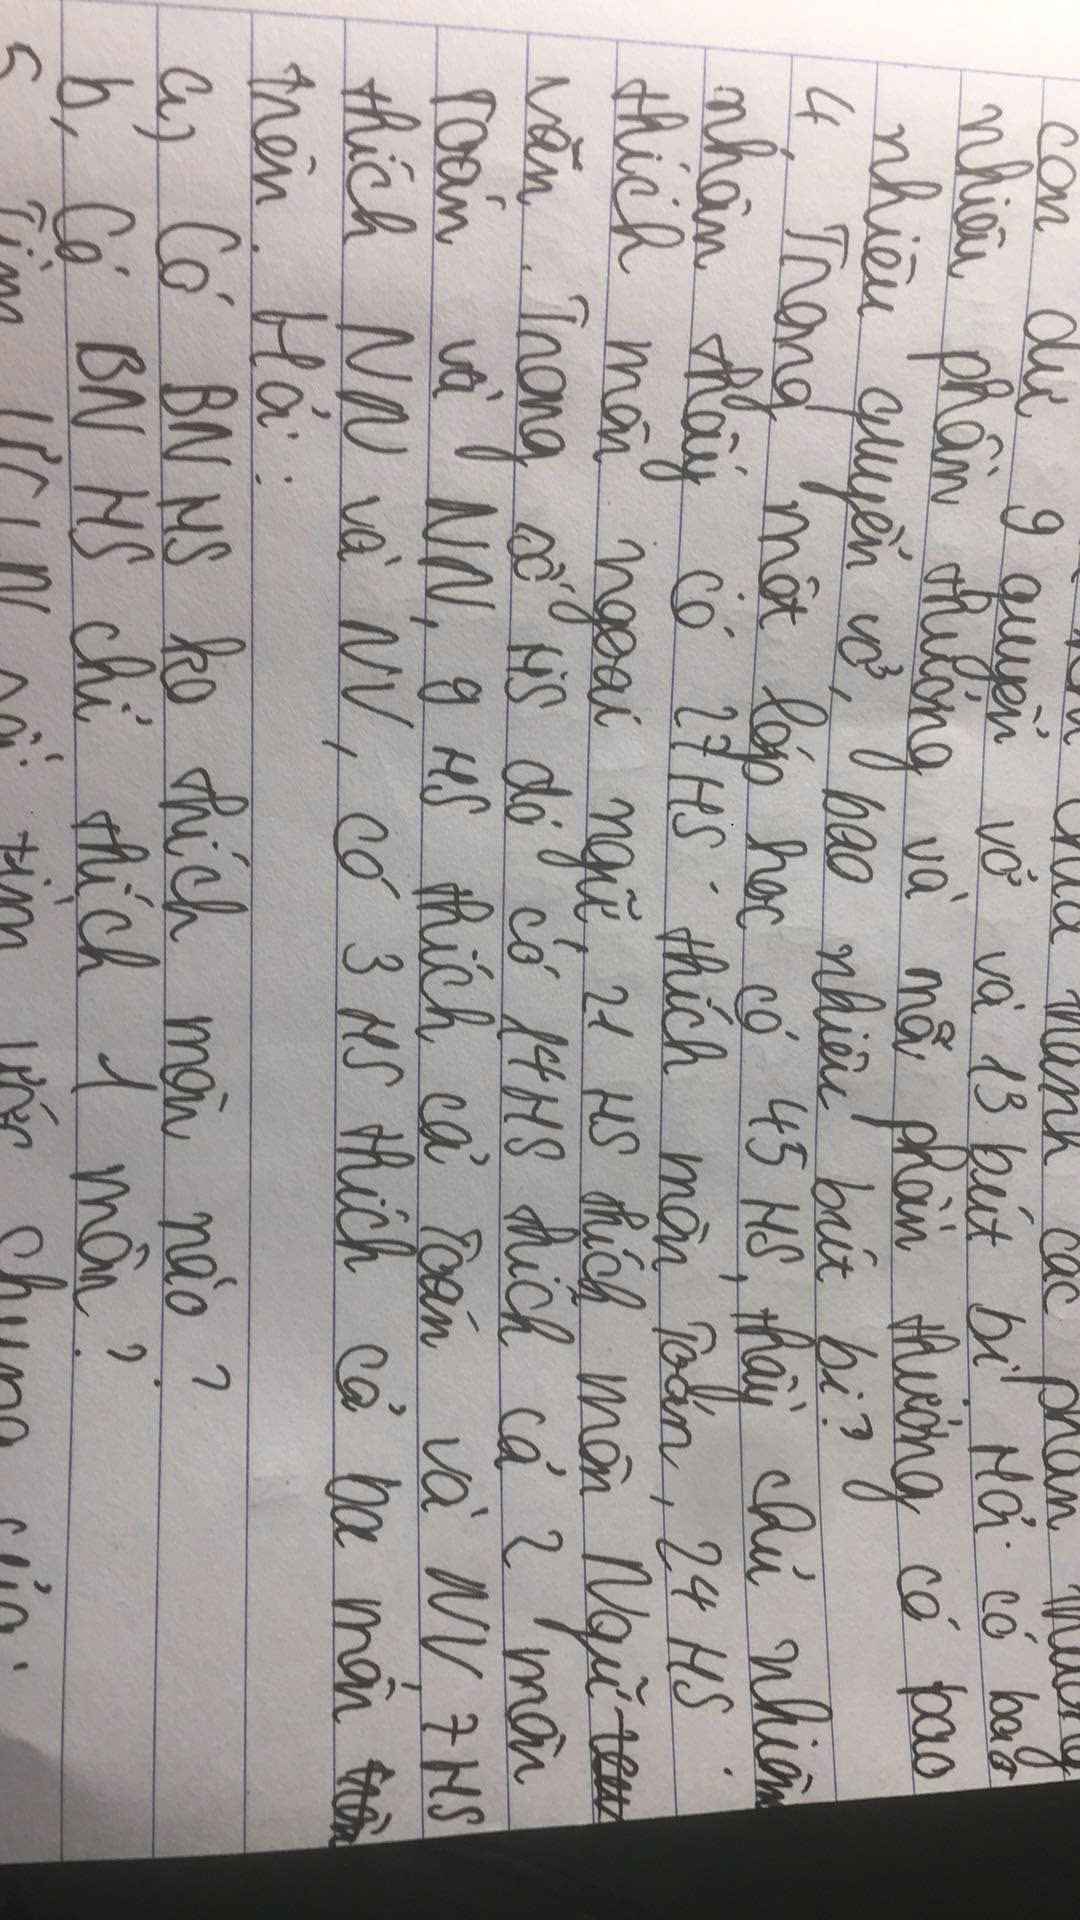 con dư 9 quyển vở và 13 bút bi. Hỏi có bao
nhiêu phần thưởng và mỗi phần thưởng có bao
nhiêu quyển vở, bao nhiêu bút bi?
4, Trong một lớp học có 45 HS, thầy chủ nhiệm
nhận thấy có 27 HS thích môn Toán, 24 HS
thích môn ngoại ngữ, 21 HS thích môn Ngữ
văn. Trong số HS đó có 14 HS thích cả 2 môn
Toán và NN, 9 HS thích cả Toán và NV 7 HS
thích NN và NV, có 3 HS thích cả ba môn
trên. Hỏi:
a, Có BN HS ko thích môn nào?
b, Có BN HS chỉ thích 1 môn?
5 Tìm ƯCLN rồi tìm ước chung của